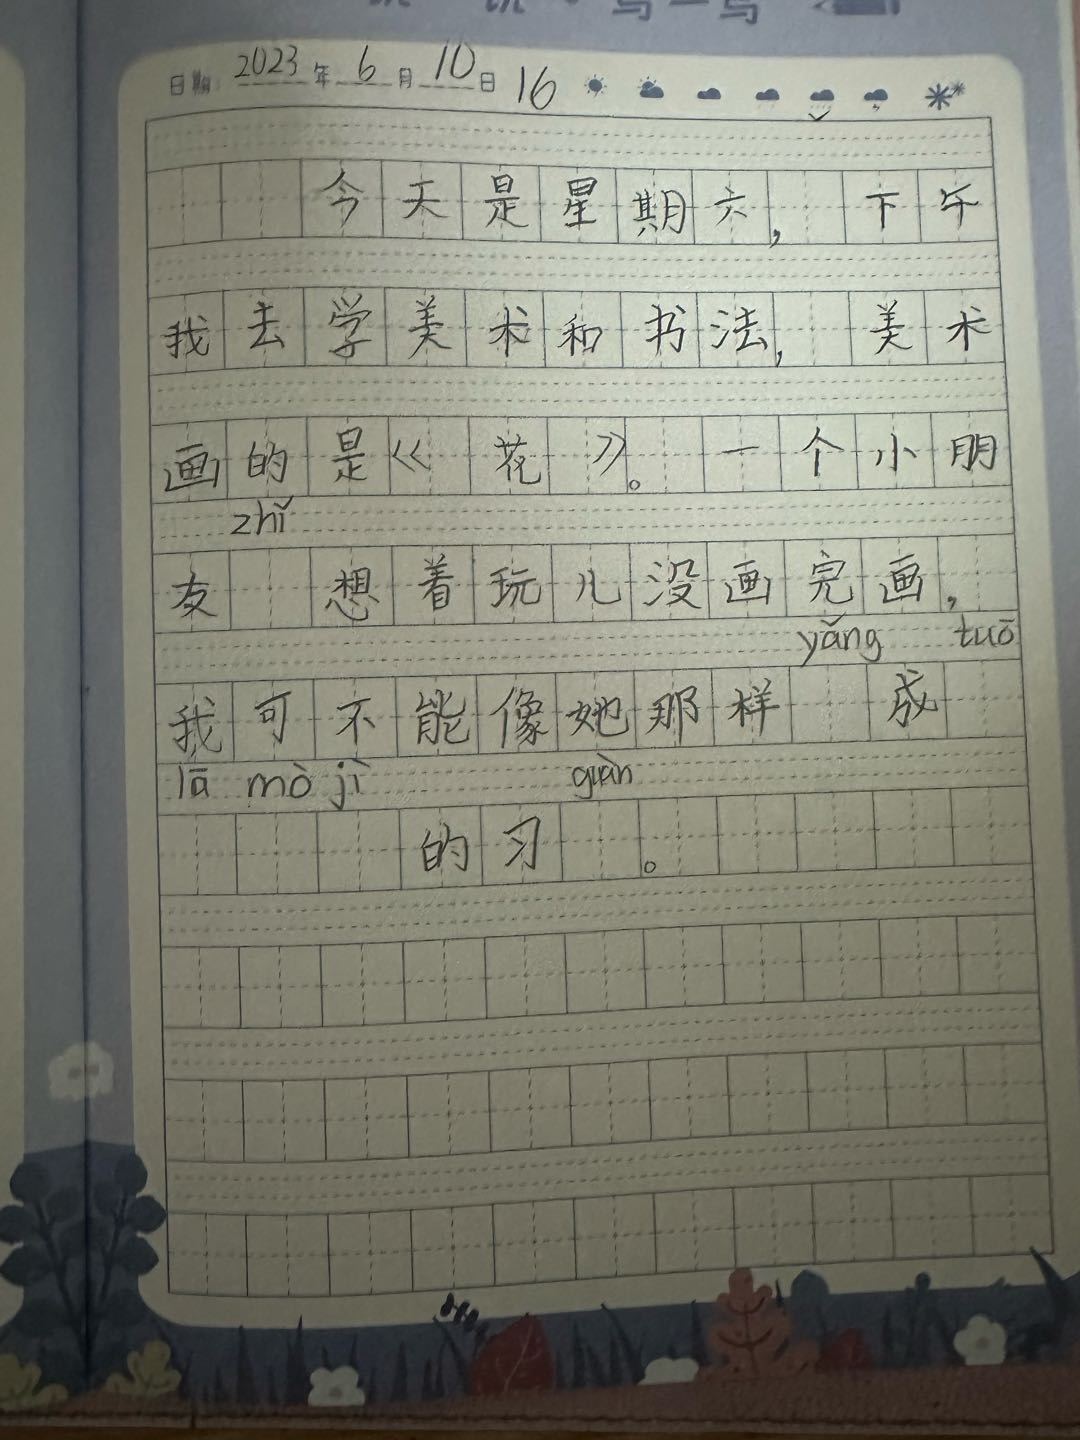 日期: 2023 年 6 月 10 日 16
今天是星期六,下午
我去学美术和书法,美术
画的是《花》。一个小朋
zhǐ
友 想着玩儿没画完画,
yǎng tuō
我可不能像她那样 成
lā mò jì guàn
的习 。